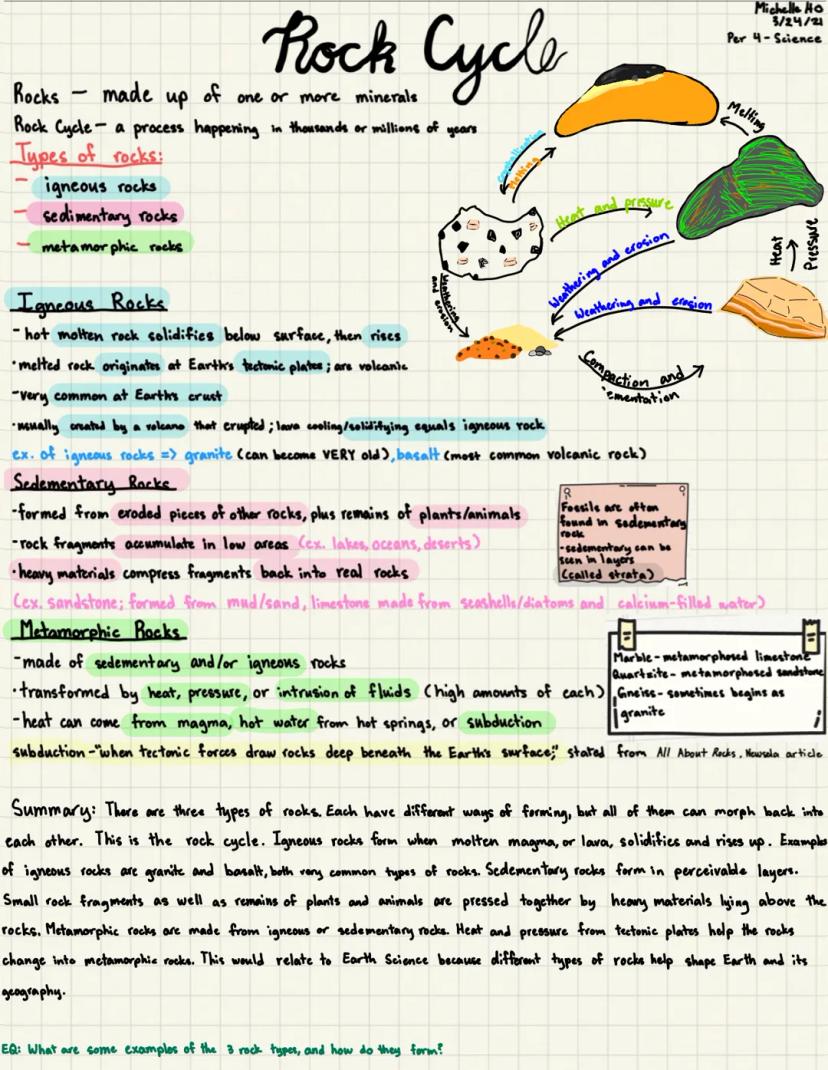 Michelle Ho
3/24/21
Per 4 - Science
Rock Cycle
Rocks — made up of one or more minerals
Rock Cycle — a process happening in thousands or millions of years
Types of rocks:
- igneous rocks
- sedimentary rocks
- metamorphic rocks
Crystallization
Melting
Melting
Heat and pressure
Heat
Pressure
Weathering and erosion
Weathering and erosion
Weathering
and erosion
Compaction and
ementation
Igneous Rocks
- hot molten rock solidifies below surface, then rises
· melted rock originates at Earth's tectonic plates; are volcanic
- very common at Earth's crust
· usually created by a volcano that erupted; lava cooling/solidifying equals igneous rock
ex. of igneous rocks => granite (can become VERY old), basalt (most common volcanic rock)
Sedementary Rocks
- formed from eroded pieces of other rocks, plus remains of plants/animals
- rock fragments accumulate in low areas (ex. lakes, oceans, deserts)
· heavy materials compress fragments back into real rocks
(ex. sandstone; formed from mud/sand, limestone made from seashells/diatoms and calcium-filled water)
Fossils are often
found in sedementary
rock
- sedementary can be
seen in layers
(called strata)
Metamorphic Rocks
- made of sedementary and/or igneous rocks
· transformed by heat, pressure, or intrusion of fluids (high amounts of each)
- heat can come from magma, hot water from hot springs, or subduction
subduction - "when tectonic forces draw rocks deep beneath the Earth's surface;" stated from All About Rocks, Newsela article
Marble - metamorphosed limestone
Quartzite - metamorphosed sandstone
Gneiss - sometimes begins as
granite
Summary: There are three types of rocks. Each have different ways of forming, but all of them can morph back into
each other. This is the rock cycle. Igneous rocks form when molten magma, or lava, solidifies and rises up. Examples
of igneous rocks are granite and basalt, both very common types of rocks. Sedementary rocks form in perceivable layers.
Small rock fragments as well as remains of plants and animals are pressed together by heavy materials lying above the
rocks. Metamorphic rocks are made from igneous or sedementary rocks. Heat and pressure from tectonic plates help the rocks
change into metamorphic rocks. This would relate to Earth Science because different types of rocks help shape Earth and its
geography.
EQ: What are some examples of the 3 rock types, and how do they form?